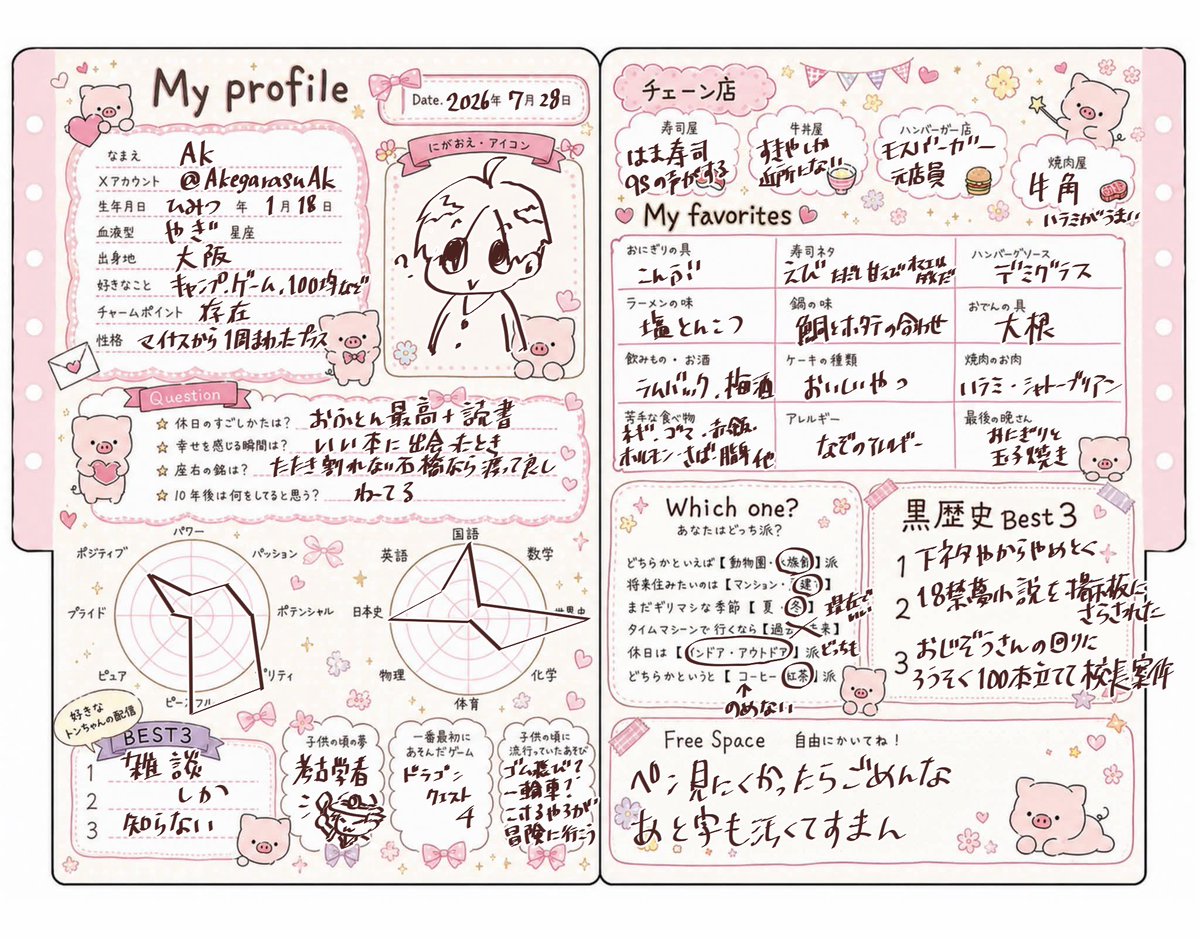 My profile
Date. 2026年 7月 28日
なまえ Ak
Xアカウント @AkegarasuAk
生年月日 ひみつ 年 1月 18日
血液型 やぎ 星座
出身地 大阪
好きなこと キャンプ、ゲーム、100均など
チャームポイント 存在
性格 マイナスから1周まわったプラス
にがおえ・アイコン
?
Question
休日のすごしかたは? おふとん最高+読書
幸せを感じる瞬間は? いい本に出会ったとき
座右の銘は? たたき割れない石橋なら渡って良し
10年後は何をしてると思う? わーてる
パワー
パッション
ポテンシャル
ピュア
プライド
ポジティブ
国語
数学
化学
体育
物理
日本史
英語
好きな
トンちゃんの配信
BEST3
1 雑談
2 しか
3 知らない
子供の頃の夢
考古学者
一番最初に
あそんだゲーム
ドラゴン
クエスト
4
子供の頃に
流行っていたあそび
ゴム飛び?
一輪車?
こまるやろが
冒険に行こう
チェーン店
寿司屋
はま寿司
95の声がする
牛丼屋
すきやしか
近所にない
ハンバーガー店
モスバーガー
元店員
焼肉屋
牛角
ハラミがうまい
My favorites
おにぎりの具
こんぶ
寿司ネタ
えび ただし甘えび
ハンバーグソース
デミグラス
ラーメンの味
塩とんこつ
鍋の味
鯛とホタテの合わせ
おでんの具
大根
飲みもの・お酒
ラムバック、梅酒
ケーキの種類
おいしいやつ
焼肉のお肉
ハラミ・シャトーブリアン
苦手な食べ物
ネギ・ゴマ・赤飯
ホルモン・さば 他
アレルギー
なぞのアレルギー
最後の晩さん
おにぎりと
玉子焼き
Which one?
あなたはどっち派?
どちらかといえば【動物園・水族館】派
将来住みたいのは【マンション・一建】
まだギリマシな季節【夏・冬】
現在で
いい
タイムマシーンで行くなら【過去・未来】
休日は【インドア・アウトドア】派 どっちも
どちらかというと【コーヒー・紅茶】派
↑
のめない
黒歴史 Best 3
1 下ネタやからやめとく
2 18禁夢小説を掲示板に
さらされた
3 おじぞうさんの回りに
ろうそく100本立てて校長案件
Free Space 自由にかいてね!
ペン見にくかったらごめんな
あと字も汚くてすまん